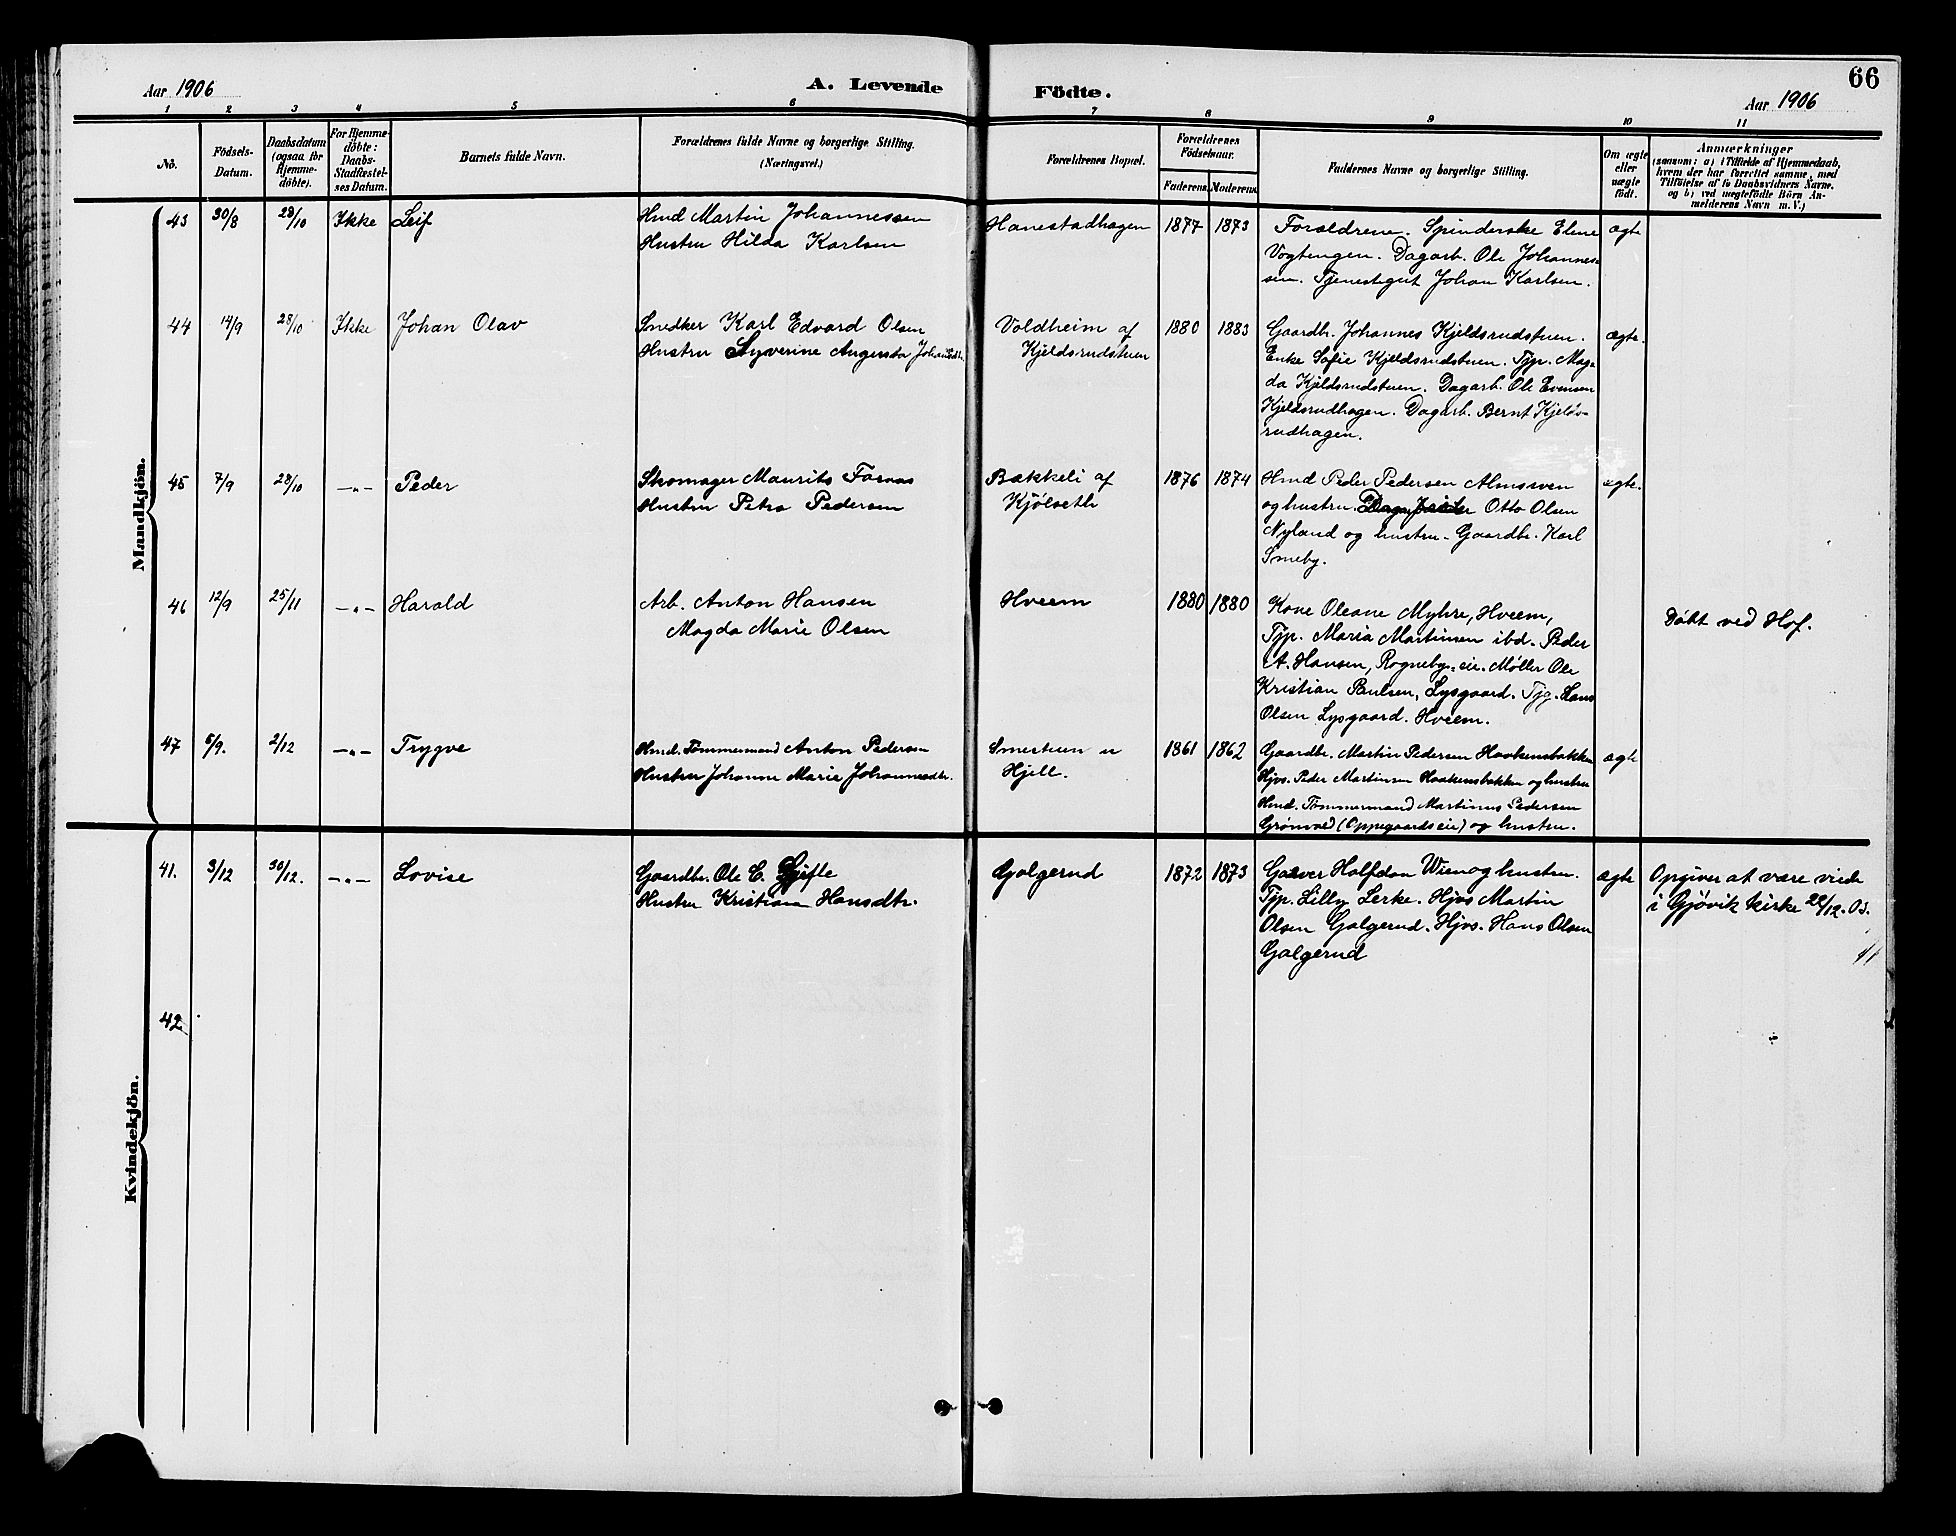 66
Aar 1906
A. Levende
Födte.
Aar 1906
1 2 3 4 5 6 7 8 9 10 11
No.
Födsels-
Datum.
Daabsdatum
(ogsaa for
Hjemme-
döbte).
For Hjemme-
döbte:
Daabs-
Stadfæstel-
ses Datum.
Barnets fulde Navn.
Forældrenes fulde Navne og borgerlige Stilling.
(Næringsvei.)
Forældrenes Bopæl.
Forældrenes
Födselsaar.
Faderens. Moderens.
Faddernes Navne og borgerlige Stilling.
Om ægte
eller
uægte
födt.
Anmærkninger
(saasom: a) i Tilfælde af Hjemmedaab,
hvem der har forrettet samme, med
Tilföielse af to Daabsvidners Navne,
og b) ved uægtefödte Börn An-
melderens Navn m. V.)
Mandkjön.
43 30/8 28/10 Ikke Leif
Hmd Martin Johannessen
Hustru Hilda Karlsen
Hanestadhagen 1877 1873
Forældrene. Spinderske Elene
Vogtengen. Dagarb. Ole Johannes-
sen. Tjenestegut Johan Karlsen.
ægte
44 14/9 28/10 Ikke Johan Olav
Snedker Karl Edvard Olsen
Hustru Syverine Augusta Johansdtr.
Voldheim af
Kjeldsrudstuen
1880 1883
Gaardbr. Johannes Kjeldsrudstuen.
Enke Sofie Kjeldsrudstuen. Tjp. Mag-
da Kjeldsrudstuen. Dagarb. Ole Evensen
Kjeldsrudhagen. Dagarb. Bernt Kjelds-
rudhagen.
ægte.
45 7/9 28/10 -"- Peder
Skomager Maurits Farnas
Hustru Petra Pedersen
Bækkeli af
Kjölseth
1876 1874
Hmd Peder Pedersen Almsveen
og hustru. Otto Olsen
Nyland og hustru. Gaardbr. Karl
Smeby.
ægte.
46 12/9 25/11 -"- Harald
Arb. Anton Hansen
Magda Marie Olsen
Hveem 1880 1880
Kone Oleane Myhre, Hveem,
Tjp. Maria Martinsen ibd. Peder
A. Hansen, Rogneby-eie. Møller Ole
Kristian Paulsen, Lysgaard. Tjg. Hans
Olsen Lysgaard. Hveem.
Döbt ved Hof.
47 5/9. 2/12 -"- Trygve
Hmd. Tømmermand Anton Pedersen
Hustru Johanne Marie Johannesdtr.
Smestuen u
Hjell.
1861 1862
Gaardbr. Martin Pedersen Haakensbakken
Hjvs. Peder Martinsen Haakensbakken og hustru
Hmd. Tømmermand Martinus Pedersen
Grønvold (Oppegaardseie) og hustru.
ægte
Kvindekjön.
41. 3/12 30/12. -"- Lovise
Gaardbr. Ole E. Gjefle
Hustru Kristiane Hansdtr.
Galgerud 1872 1873
Garver Halfdan Wien og hustru.
Tjp. Lilly Lerke. Hjvs Martin
Olsen Galgerud. Hjvs. Hans Olsen
Galgerud
ægte
Opgiver at være viede
i Gjövik kirke 22/12.03.
42